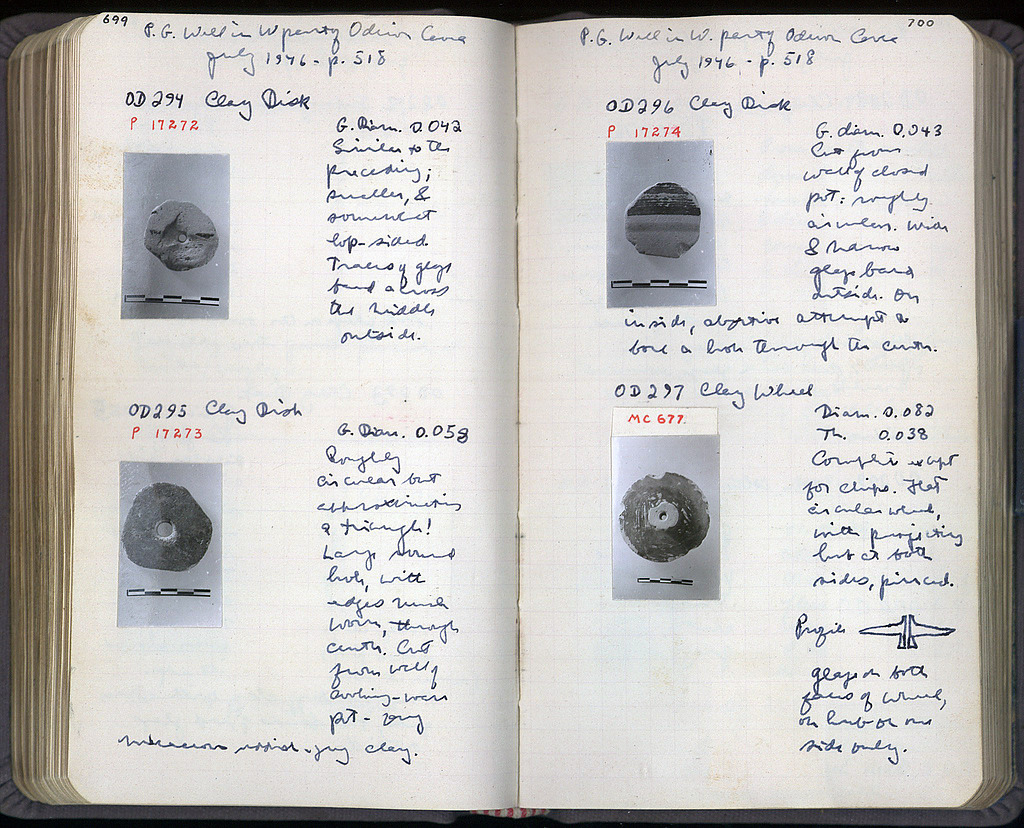 699
P. G. Well in W part of Odeion Cavea
July 1946 - p. 518
OD 294 Clay Disk
P 17272
G. Diam. 0.042
Similar to the
preceding;
smaller, &
somewhat
lop-sided.
Traces of glaze
band across
the middle
outside.
OD 295 Clay Disk
P 17273
G. Diam. 0.058
Roughly
circular but
approximating
a triangle!
Large round
hole, with
edges much
worn, through
center. Cut
from wall of
cooking-ware
pot - very
micaceous reddish-grey clay.
700
P. G. Well in W. part of Odeion Cavea
July 1946 - p. 518
OD 296 Clay Disk
P 17274
G. diam. 0.043
Cut from
wall of closed
pot: roughly
circular. Wide
& narrow
glaze band
outside. On
inside, abortive attempt to
bore a hole through the center.
OD 297 Clay Wheel
MC 677.
Diam. 0.082
Th. 0.038
Complete except
for chips. Flat
circular wheel,
with projecting
hub at both
sides, pierced.
Profile
glaze on both
faces of wheel,
on hub on one
side only.